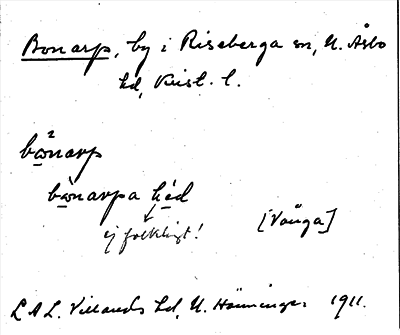 Bonarp, by i Riseberga sn, N. Åsbo
hd, Krist. l.
2
bωnarp
bὼnarpa héd
ej folkligt!
[Vånga]
L A L. Villands hd, N. Hänninger 1911.